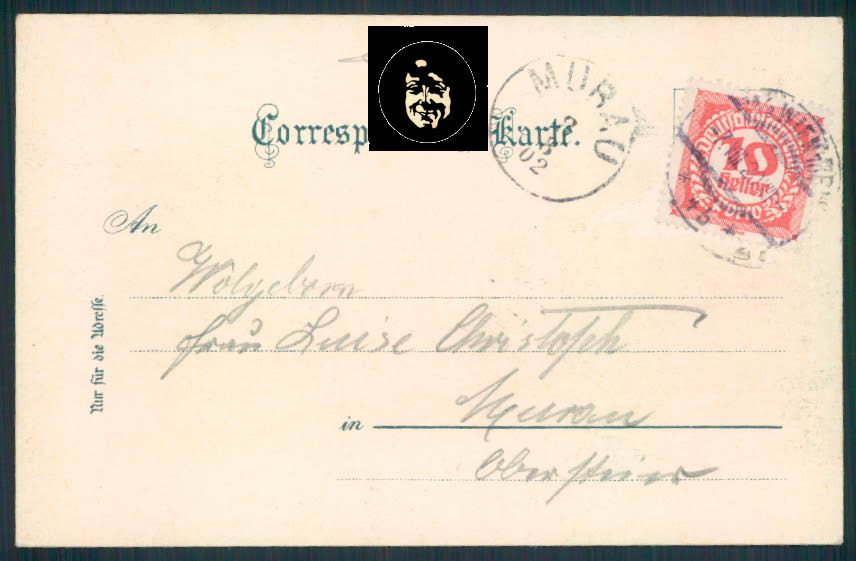 Corresp Karte.
MURAU
2
02
10
Heller
An
Wolgeborn
Frau Luise Christoph
in Murau
Obersteier
Nur für die Adresse.